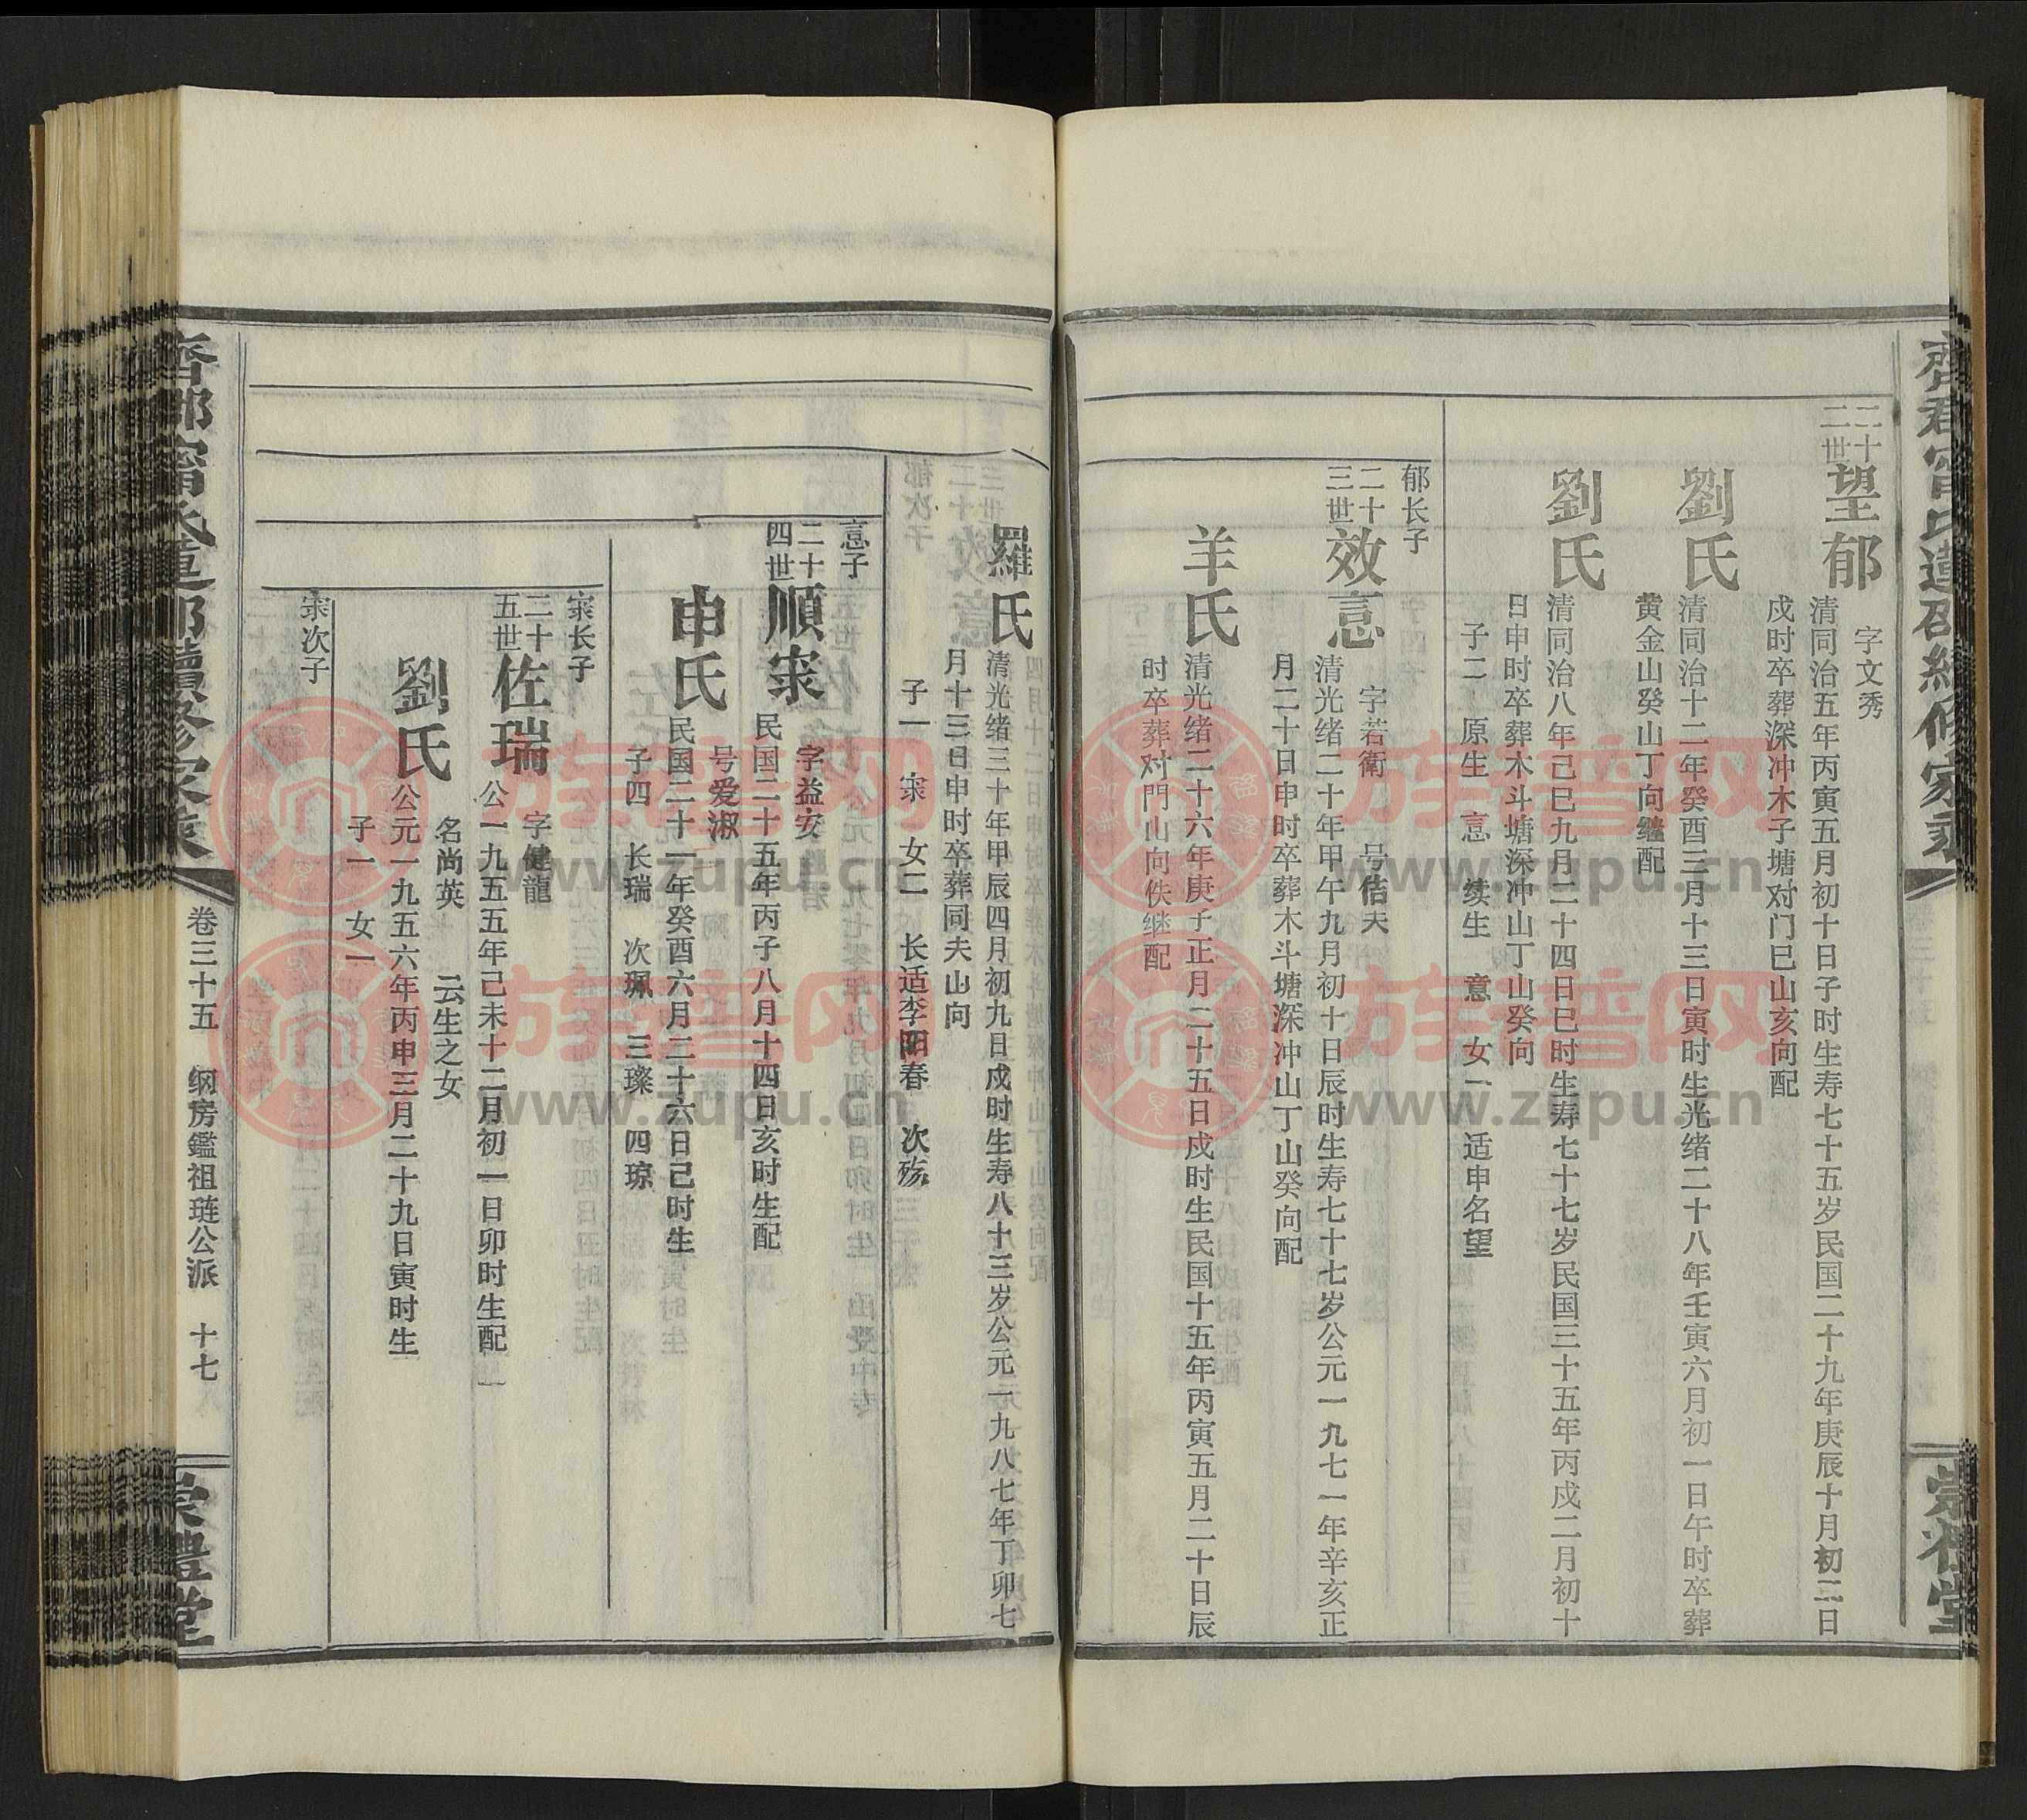 二十
二世
望郁
字文秀
清同治五年丙寅五月初十日子时生寿七十五岁民国二十九年庚辰十月初二日
戍时卒葬深冲木子塘对门巳山亥向配
劉氏
清同治十二年癸酉三月十三日寅时生光绪二十八年壬寅六月初一日午时卒葬
黄金山癸山丁向继配
劉氏
清同治八年己巳九月二十四日巳时生寿七十七岁民国三十五年丙戍二月初十
日申时卒葬木斗塘深冲山丁山癸向
子二 原生 意 续生 意 女一 适申名望
郁长子
二十
三世
效意
字若衛 号佶夫
清光绪二十年甲午九月初十日辰时生寿七十七岁公元一九七一年辛亥正
月二十日申时卒葬木斗塘深冲山丁山癸向配
羊氏
清光绪二十六年庚子正月二十五日戍时生民国十五年丙寅五月二十日辰
时卒葬对門山向佚继配
羅氏
清光绪三十年甲辰四月初九日戍时生寿八十三岁公元一九八七年丁卯七
月十三日申时卒葬同夫山向
子一 寀 女二 长适李阳春 次殇
意子
二十
四世
順寀
字益安
民国二十五年丙子八月十四日亥时生配
申氏
号爱淑
民国二十一年癸酉六月二十六日己时生
子四 长瑞 次珮 三璨 四琼
寀长子
二十
五世
佐瑞
字健龍
公一九五五年己未十二月初一日卯时生配
劉氏
名尚英 云生之女
公元一九五六年丙申三月二十九日寅时生
子一 女一
寀次子
卷三十五 纲房鑑祖琏公派 十七
崇禮堂
族普网
www.zupu.cn
族普网
www.zupu.cn
族普网
www.zupu.cn
族普网
www.zupu.cn